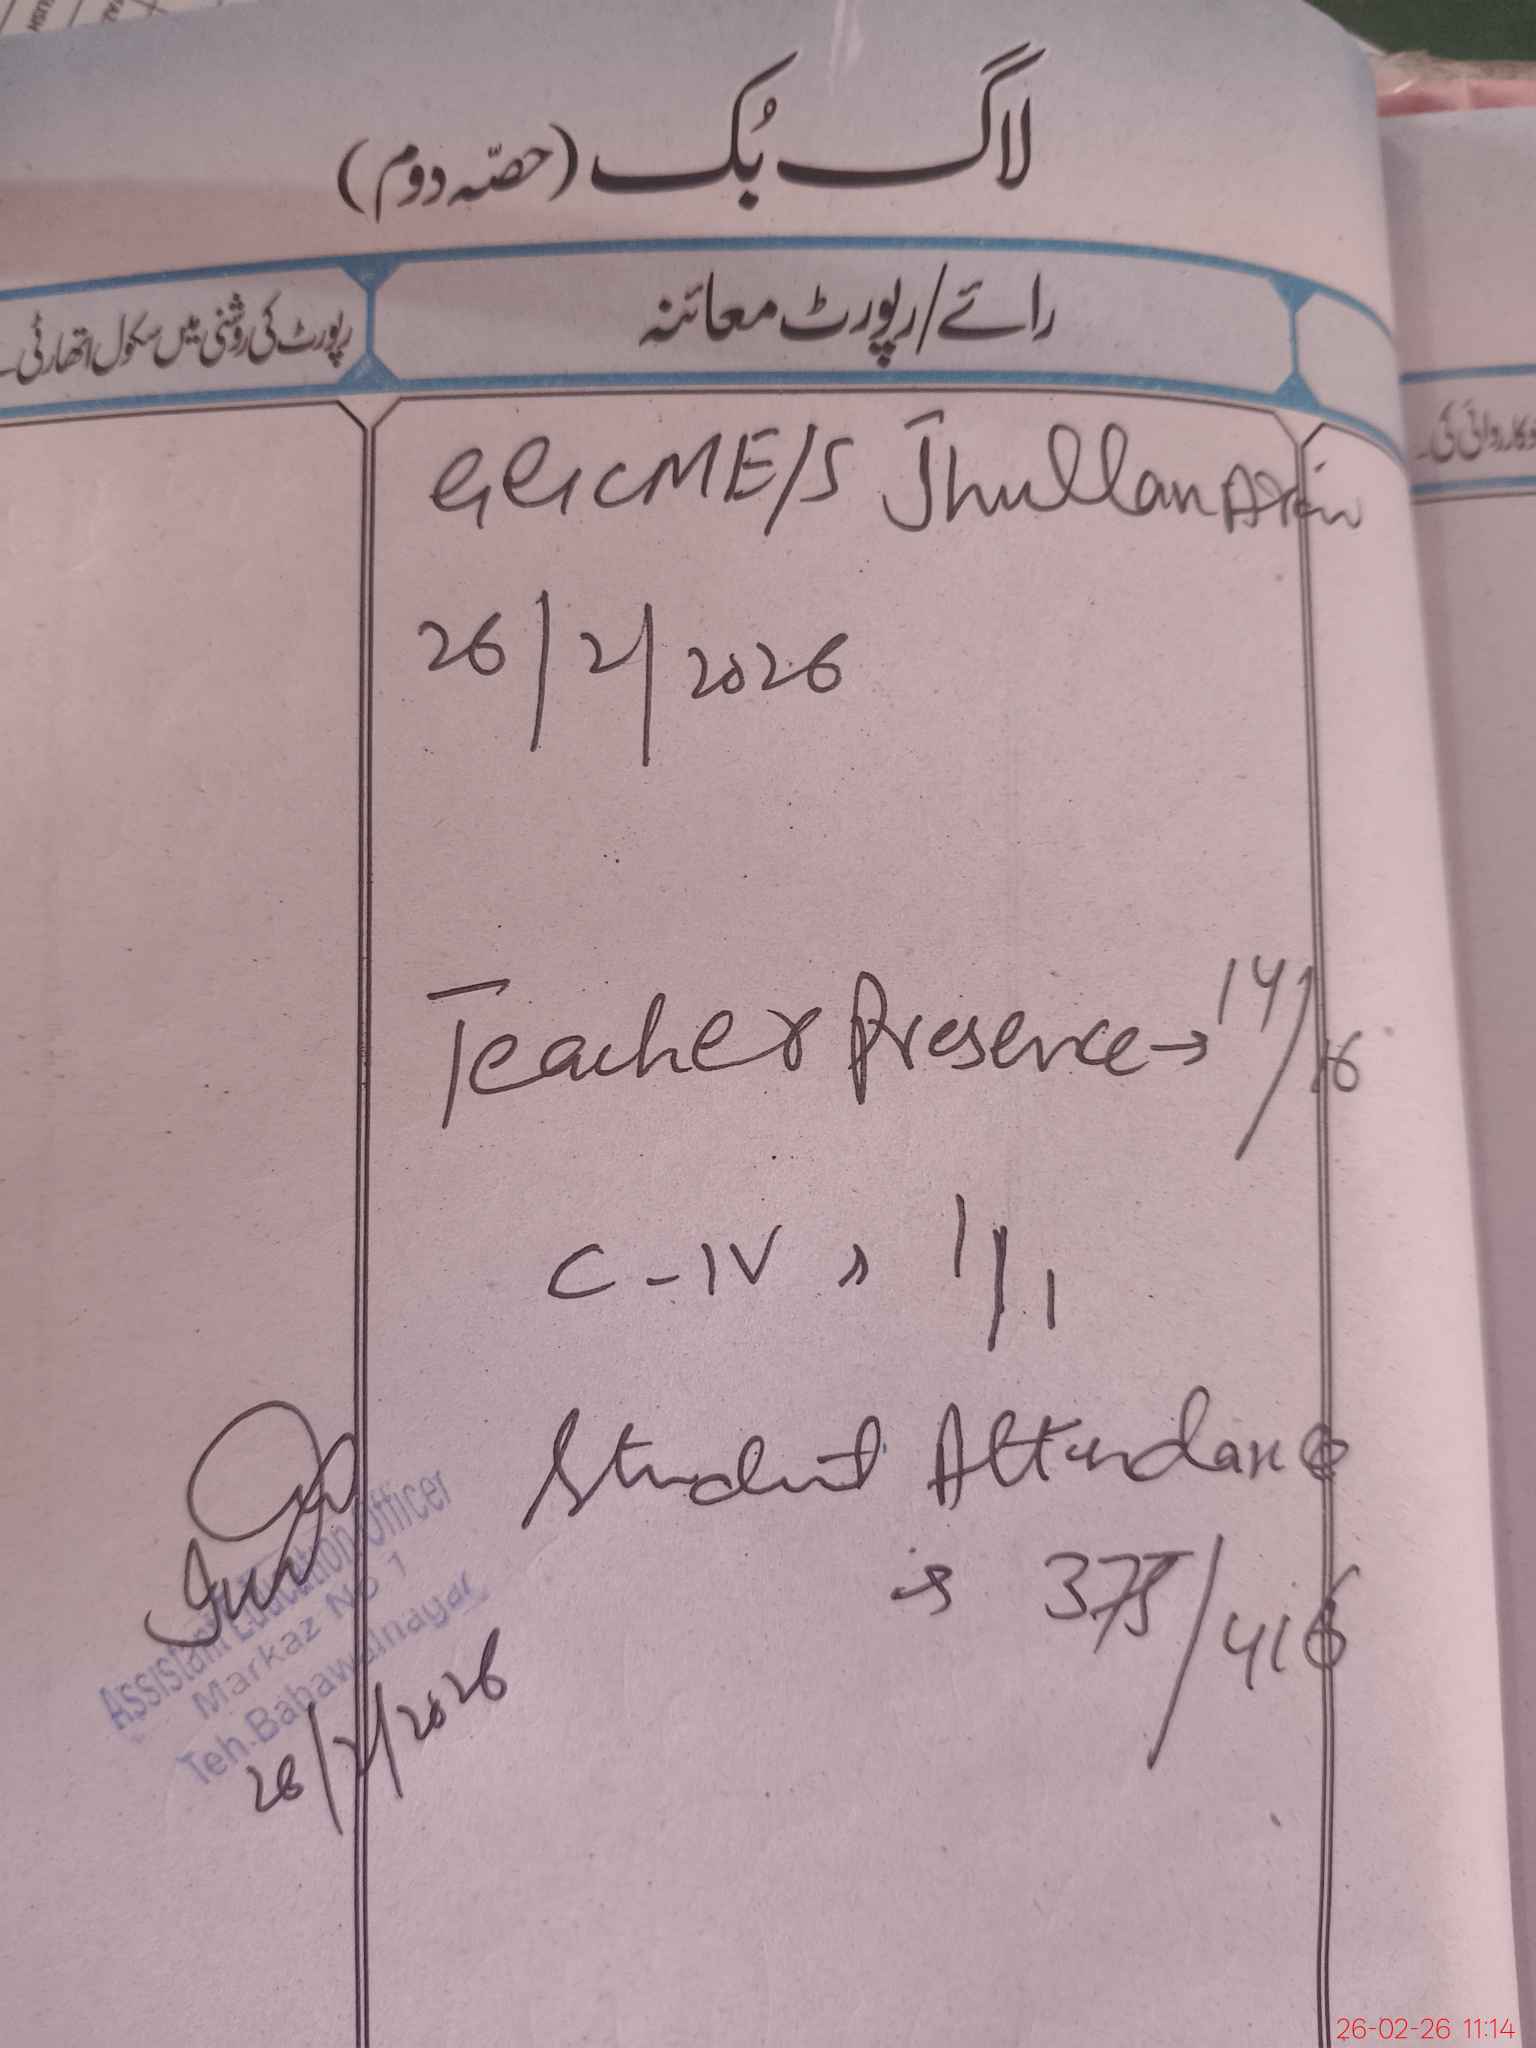 لاگ بُک (حصّہ دوم)
رائے/رپورٹ معائنہ
رپورٹ کی روشنی میں سکول اتھارٹی
GGCME/S Jhullan Arain
26/2/2026
Teacher Presence → 14/16
C-IV " 1/1
Student Attendance
is 375/416
Assistant Education Officer
Markaz No 1
Teh. Bahawalnagar
26/2/2026
26-02-26 11:14